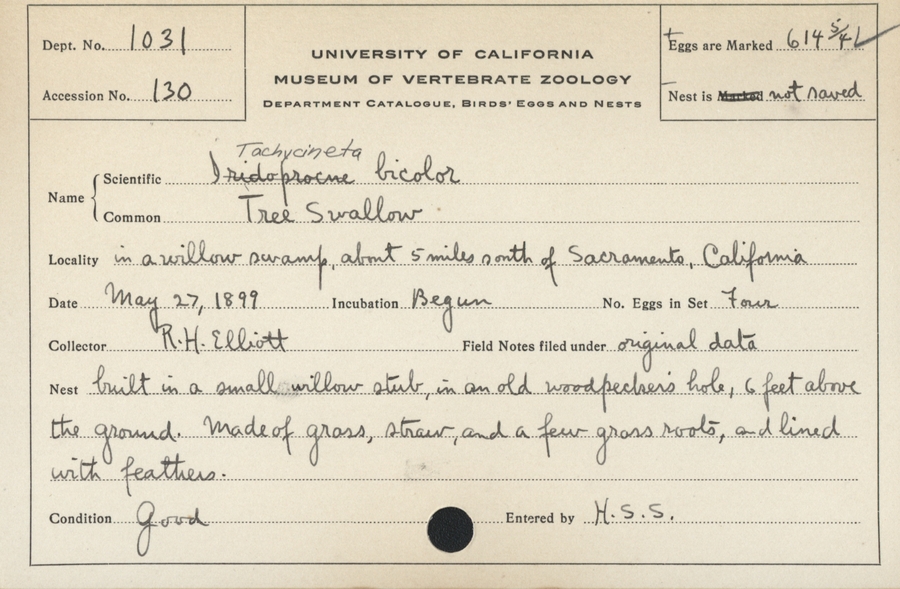 Dept. No. 1031
Accession No. 130
UNIVERSITY OF CALIFORNIA
MUSEUM OF VERTEBRATE ZOOLOGY
DEPARTMENT CATALOGUE, BIRDS' EGGS AND NESTS
Eggs are Marked 614 5/4
Nest is Marked not saved
Tachycineta
Name
Scientific Iridoprocne bicolor
Common Tree Swallow
Locality in a willow swamp, about 5 miles south of Sacramento, California
Date May 27, 1899 Incubation Begun No. Eggs in Set Four
Collector R.H. Elliott Field Notes filed under original data
Nest built in a small willow stub, in an old woodpecker's hole, 6 feet above
the ground. Made of grass, straw, and a few grass roots, and lined
with feathers.
Condition Good Entered by H.S.S.